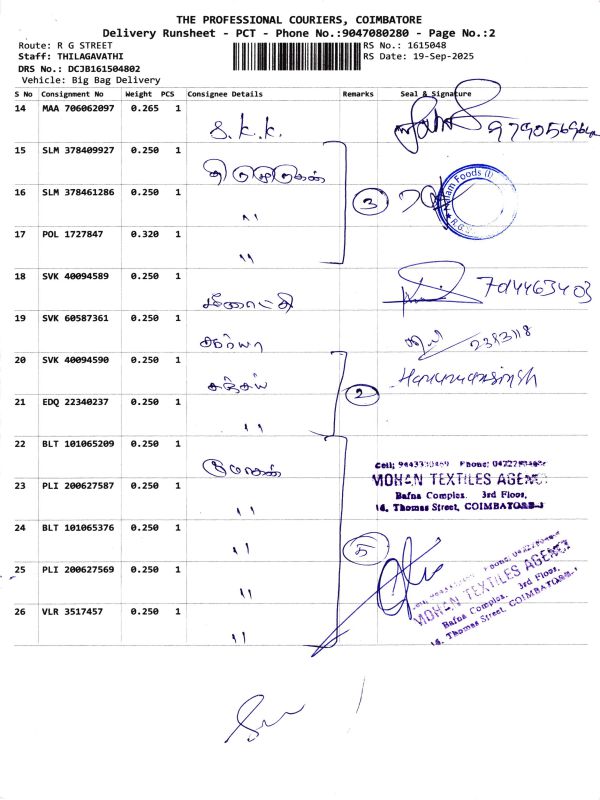 THE PROFESSIONAL COURIERS, COIMBATORE
Delivery Runsheet - PCT - Phone No.:9047080280 - Page No.:2
Route: R G STREET
Staff: THILAGAVATHI
DRS No.: DCJB161504802
Vehicle: Big Bag Delivery
RS No.: 1615048
RS Date: 19-Sep-2025
S No Consignment No Weight PCS Consignee Details Remarks Seal & Signature
14 MAA 706062097 0.265 1 S.K.K.
15 SLM 378409927 0.250 1
16 SLM 378461286 0.250 1 " 3
17 POL 1727847 0.320 1 "
18 SVK 40094589 0.250 1 மீனாட்சி 7044463403
19 SVK 60587361 0.250 1 சூர்யா
20 SVK 40094590 0.250 1 சஞ்சய்
21 EDQ 22340237 0.250 1 " 2
22 BLT 101065209 0.250 1 மோகன்
MOHAN TEXTILES AGENCY
Bafna Complex. 3rd Floor,
16, Thomas Street, COIMBATORE-1
23 PLI 200627587 0.250 1 "
24 BLT 101065376 0.250 1 " 5
25 PLI 200627569 0.250 1 "
26 VLR 3517457 0.250 1 "
MOHAN TEXTILES AGENCY
Bafna Complex. 3rd Floor,
16, Thomas Street, COIMBATORE-1